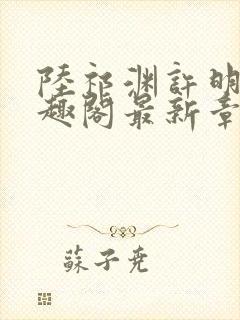 陸祁渊許明
趣閣最新章
蘇子堯